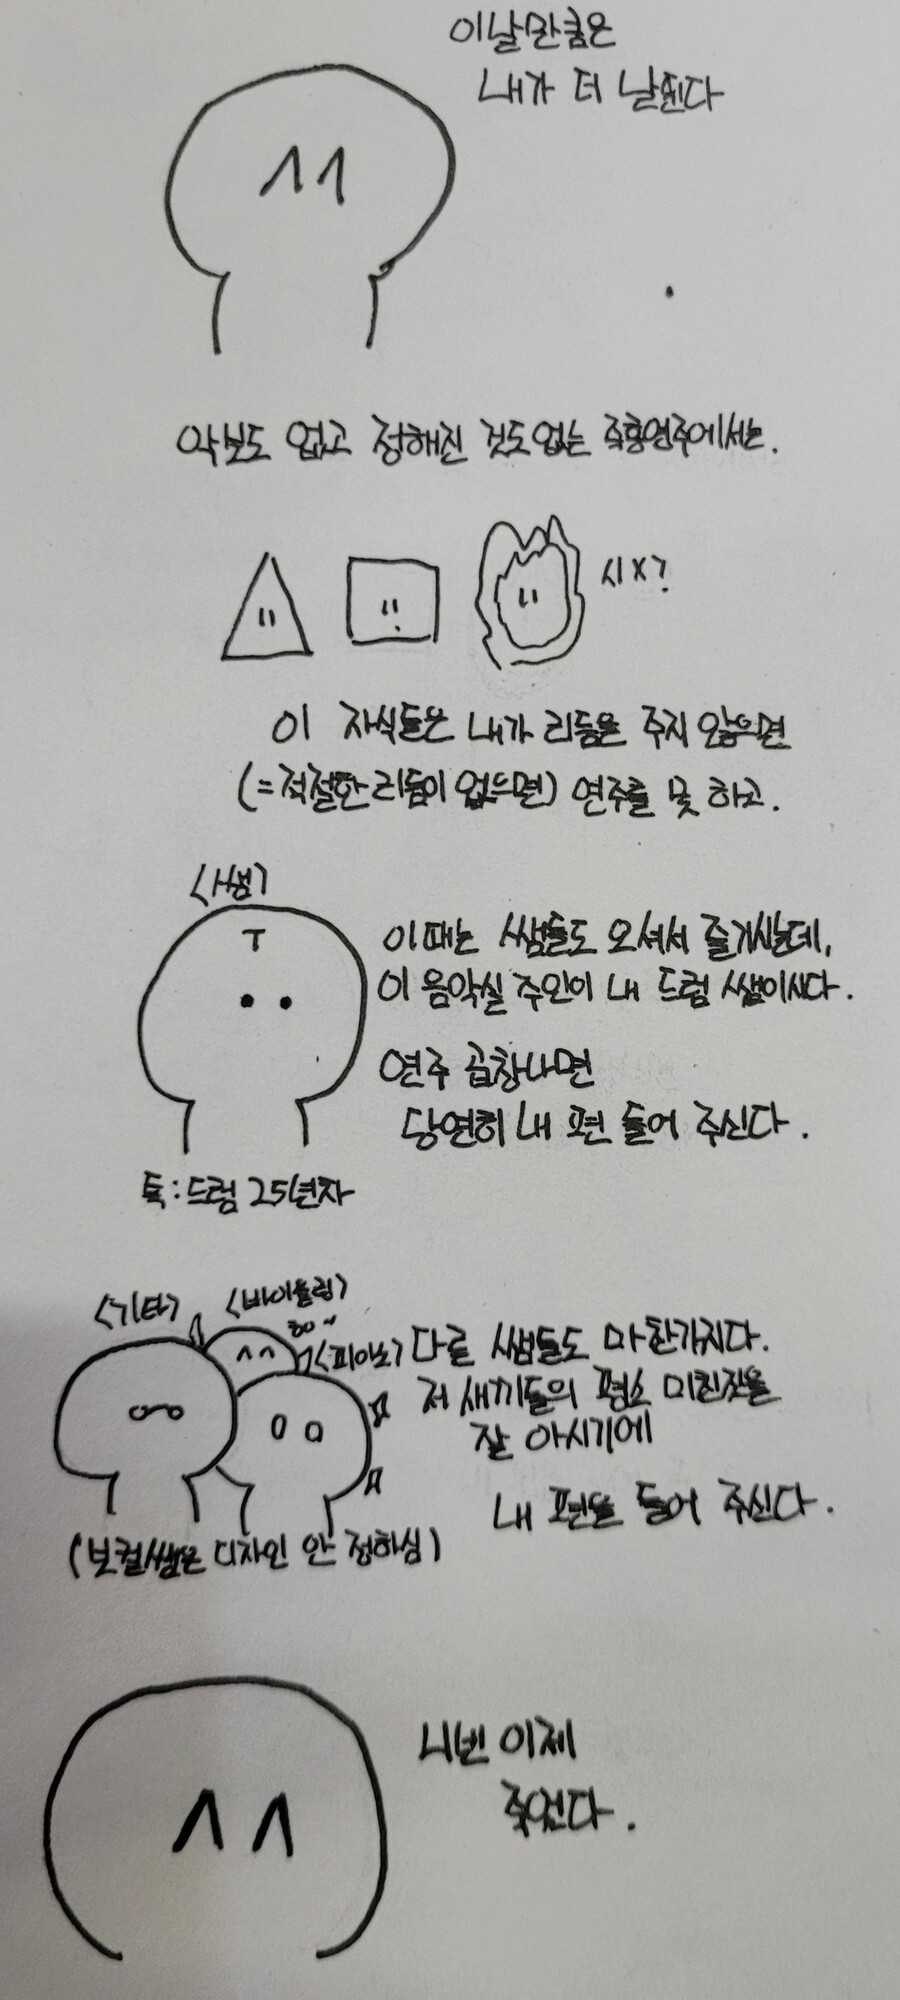 이날만큼은
내가 더 날뛴다
악보도 없고 정해진 것도 없는 즉흥연주에서는.
시X?
이 자식들은 내가 리듬을 주지 않으면
(=적절한 리듬이 없으면) 연주를 못 하고.
<쌤>
T
이때는 쌤들도 오셔서 즐기시는데,
이 음악실 주인이 내 드럼 쌤이시다.
연주 곱창나면
당연히 내 편 들어 주신다.
특:드럼 25년차
<기타> <바이올린>
<피아노> 다른 쌤들도 마찬가지다.
저 새끼들의 평소 미친짓을
잘 아시기에
내 편을 들어 주신다.
(보컬쌤은 디자인 안 정하심)
니넨 이제
죽었다.